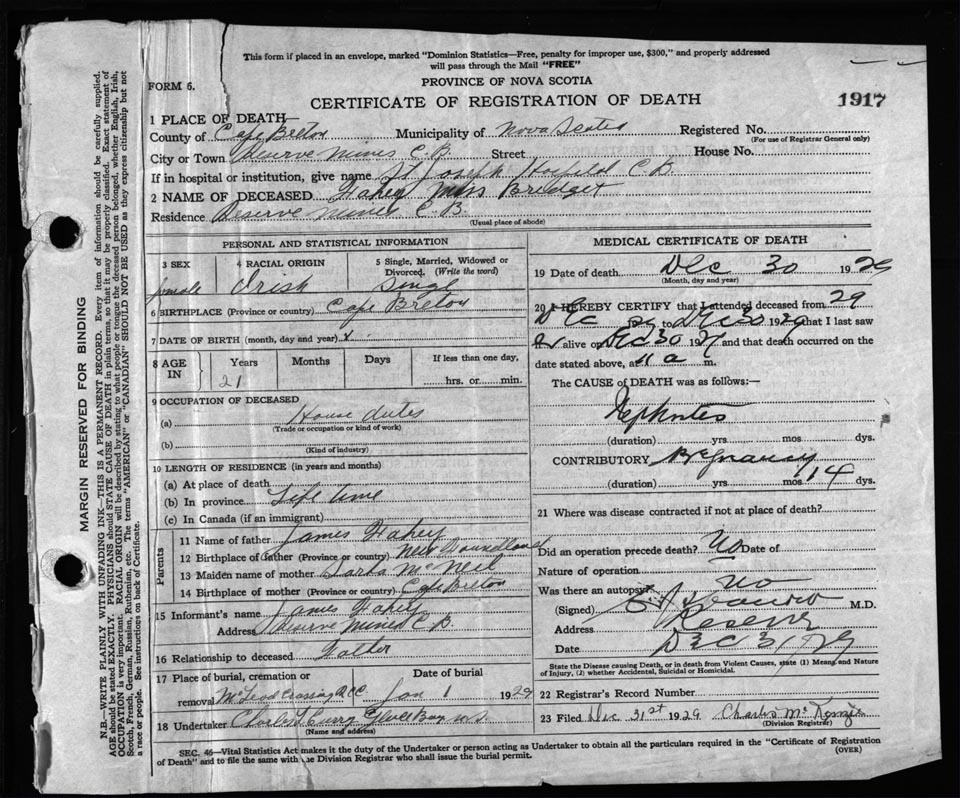 This form if placed in an envelope, marked "Dominion Statistics—Free, penalty for improper use, $300," and properly addressed
will pass through the Mail "FREE"
FORM 6.
PROVINCE OF NOVA SCOTIA
CERTIFICATE OF REGISTRATION OF DEATH
1917
1 PLACE OF DEATH—
County of Cape Breton Municipality of Nova Scotia Registered No.
(For use of Registrar General only)
City or Town Reserve Mines C.B. Street House No.
If in hospital or institution, give name St Joseph Hospital C.B.
2 NAME OF DECEASED Fahey Miss Bridget
Residence Reserve Mines C.B.
(Usual place of abode)
PERSONAL AND STATISTICAL INFORMATION
3 SEX
female
4 RACIAL ORIGIN
Irish
5 Single, Married, Widowed or Divorced. (Write the word)
Singl
6 BIRTHPLACE (Province or country) Cape Breton
7 DATE OF BIRTH (month, day and year)
8 AGE IN Years Months Days If less than one day,
21 hrs. or min.
9 OCCUPATION OF DECEASED
(a) House duties
(Trade or occupation or kind of work)
(b)
(Kind of industry)
10 LENGTH OF RESIDENCE (in years and months)
(a) At place of death
(b) In province Life time
(c) In Canada (if an immigrant)
Parents
11 Name of father James Fahey
12 Birthplace of father (Province or country) New Foundland
13 Maiden name of mother McNeil
14 Birthplace of mother (Province or country) Cape Breton
15 Informant's name James Fahey
Address Reserve Mines C.B.
16 Relationship to deceased Father
17 Place of burial, cremation or removal Date of burial
McLeod Crossing Jan 1 1929
18 Undertaker Charles Curry Glace Bay N.S.
(Name and address)
MEDICAL CERTIFICATE OF DEATH
19 Date of death Dec 30 1929
(Month, day and year)
20 I HEREBY CERTIFY that I attended deceased from 29
Dec to Dec 30 1929 that I last saw
her alive on Dec 30 and that death occurred on
date stated above, at 11 a m.
The CAUSE of DEATH was as follows:—
Nephrites
(duration) yrs mos dys.
CONTRIBUTORY Pregnancy
(duration) yrs mos 14 dys.
21 Where was disease contracted if not at place of death?
Did an operation precede death? No Date of
Nature of operation
Was there an autopsy? No
(Signed) M.D.
Address Reserve
Date Dec 31/29
State the Disease causing Death, or in death from Violent Causes, state (1) Means and Nature
of Injury, (2) whether Accidental, Suicidal or Homicidal.
22 Registrar's Record Number
23 Filed Dec 31st 1929 Charles McKenzie
(Division Registrar)
SEC. 46—Vital Statistics Act makes it the duty of the Undertaker or person acting as Undertaker to obtain all the particulars required in the "Certificate of Registration
of Death" and to file the same with the Division Registrar who shall issue the burial permit.
(OVER)
MARGIN RESERVED FOR BINDING
N.B.—WRITE PLAINLY WITH UNFADING INK—THIS IS A PERMANENT RECORD. Every item of information should be carefully supplied.
AGE should be stated EXACTLY. PHYSICIANS should STATE CAUSE OF DEATH in plain terms, so that it may be properly classified. Exact statement of
OCCUPATION is very important. RACIAL ORIGIN will be described by stating to what people or tongue the deceased person belonged, whether English, Irish,
Scotch, French, German, Russian, Ruthenian, etc. The terms "AMERICAN" or "CANADIAN" SHOULD NOT BE USED as they express citizenship but not
a race or people. See instructions on back of Certificate.